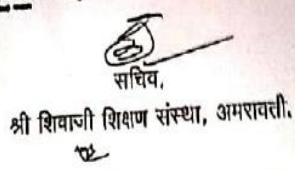 सचिव,
श्री शिवाजी शिक्षण संस्था, अमरावती.